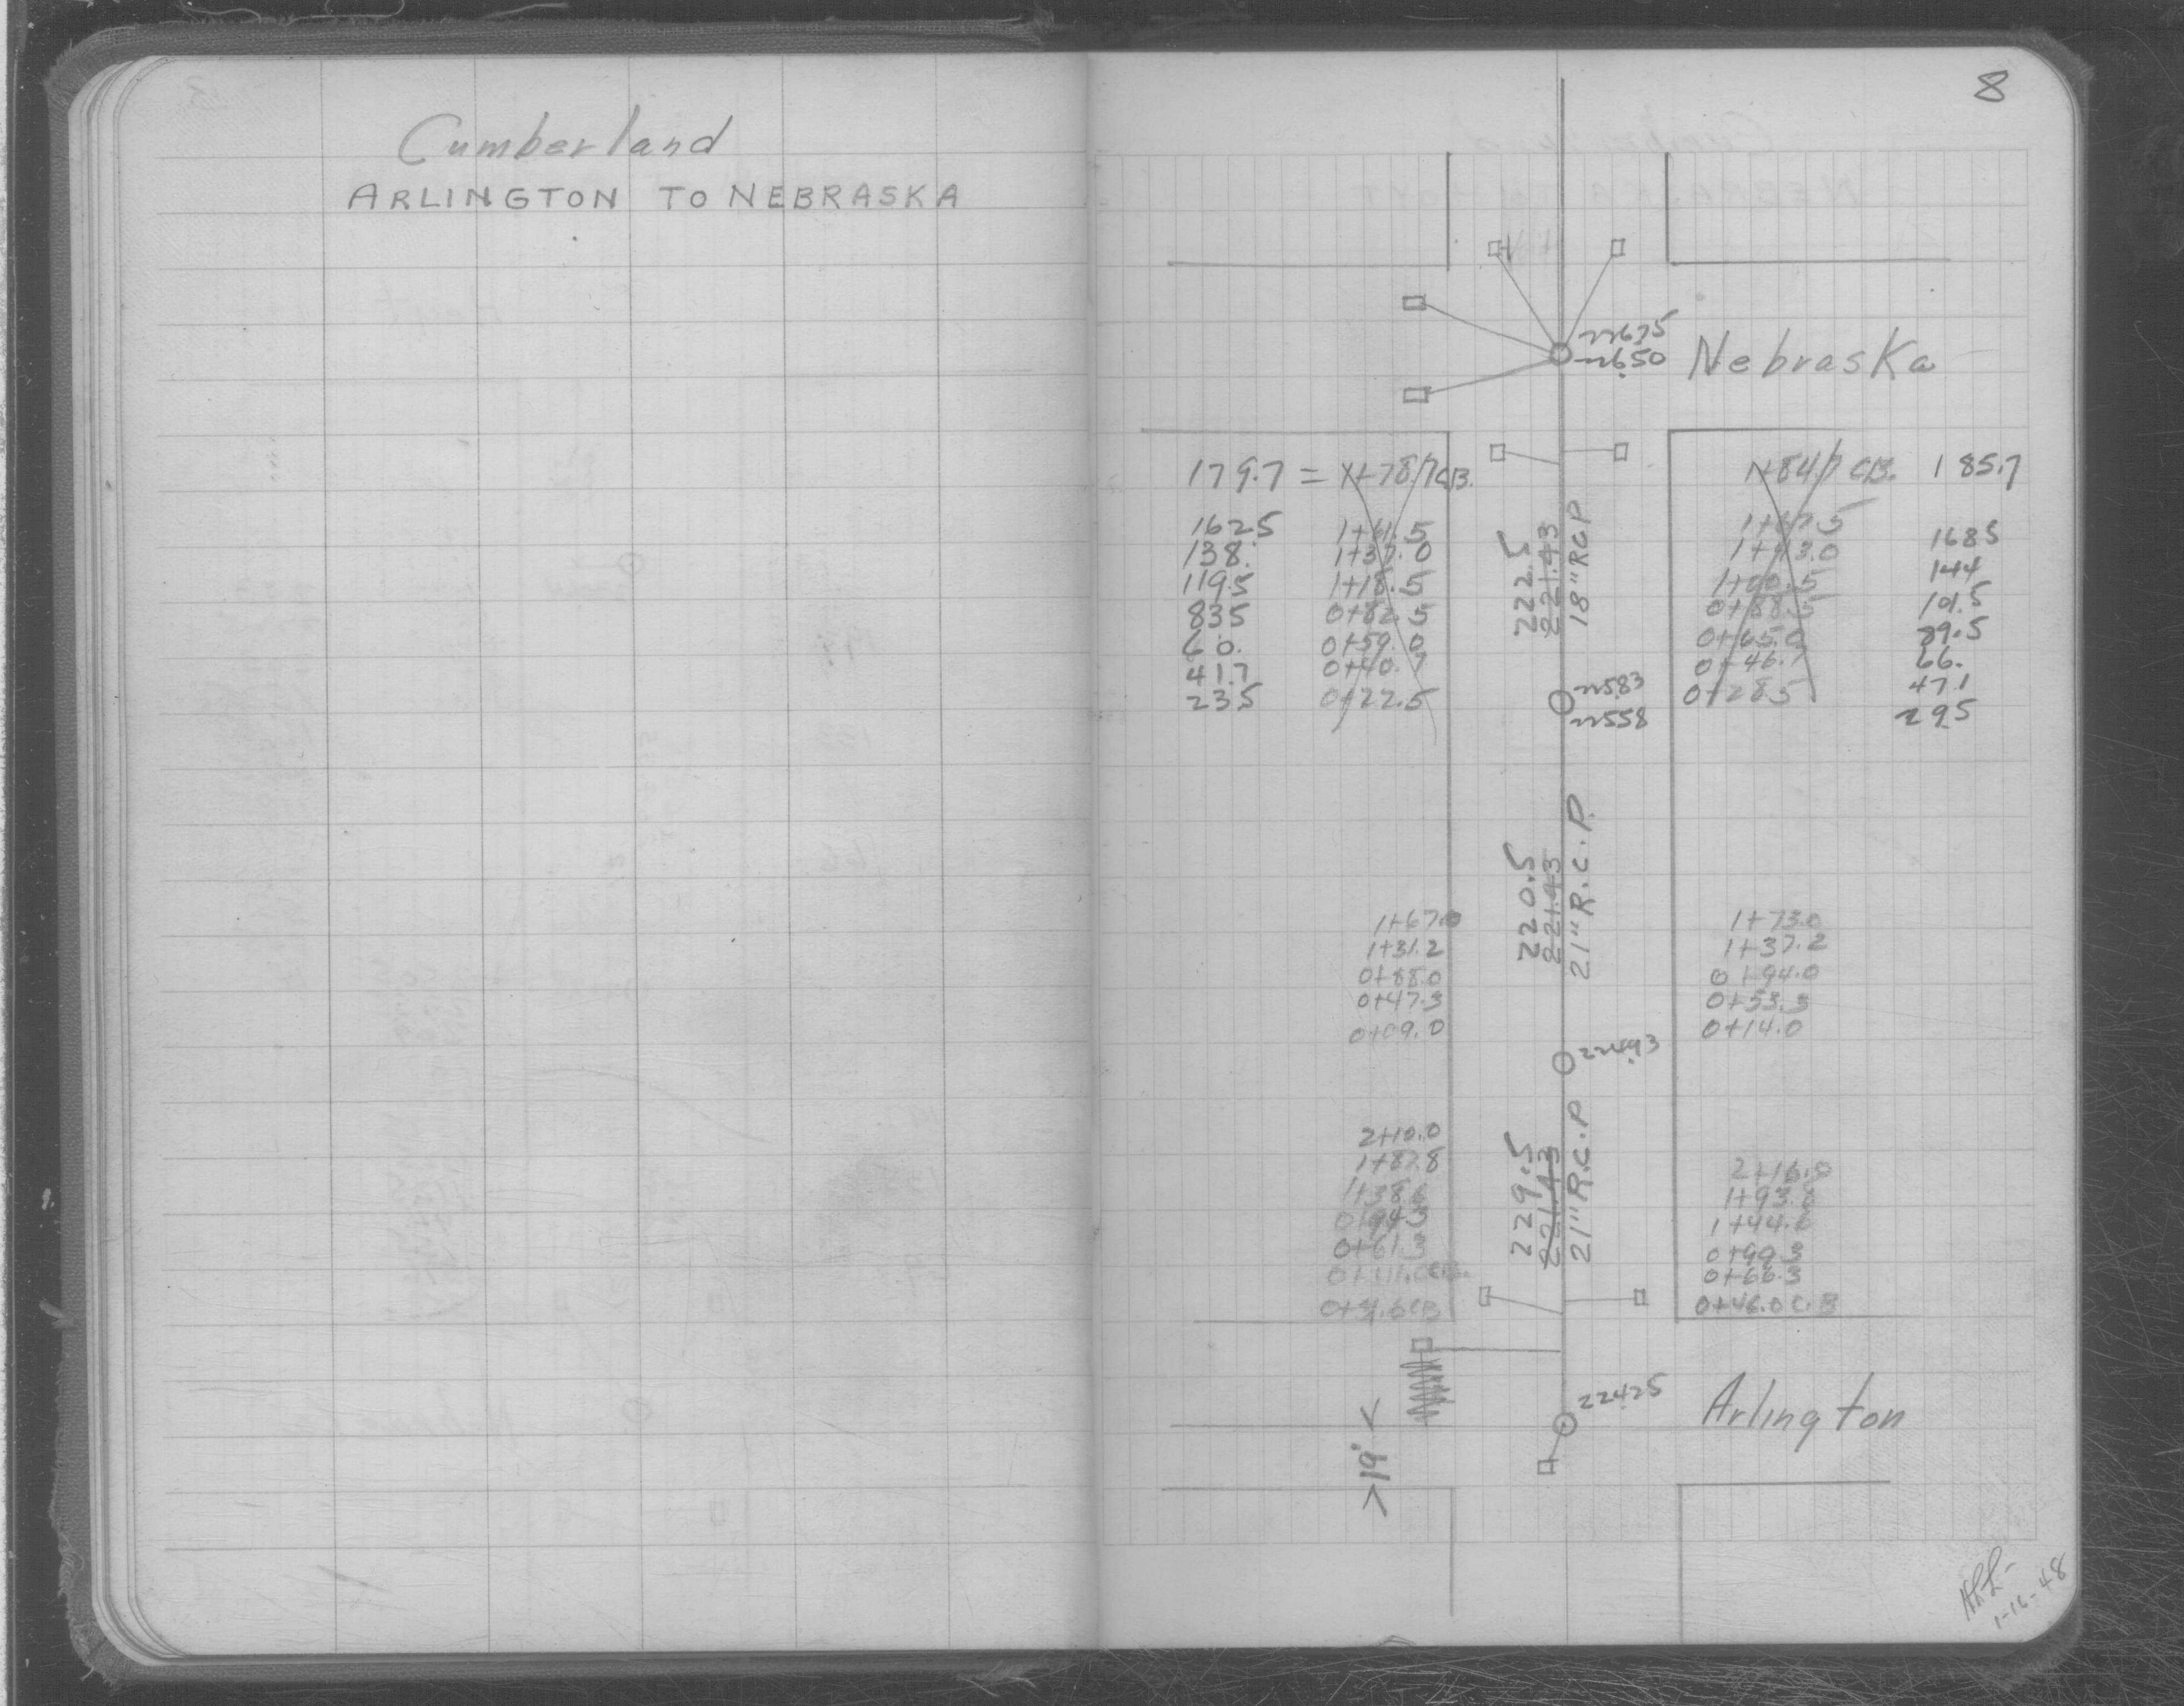 Cumberland
ARLINGTON TO NEBRASKA
8
22675
22650
Nebraska
179.7 = 1+78.7 C.B.
1+84.7 C.B. 185.7
162.5 1+61.5
138. 1+37.0
119.5 1+18.5
83.5 0+82.5
60. 0+59.0
41.7 0+40.7
23.5 0+22.5
1+67.5 168.5
1+43.0 144
1+00.5 101.5
0+88.5 89.5
0+65.0 66.
0+46.1 47.1
0+28.5 29.5
222.5
221.43
18" R.C.P
22583
22558
220.5
221.43
21" R.C.P.
1+67.0
1+31.2
0+88.0
0+47.3
0+09.0
1+73.0
1+37.2
0+94.0
0+53.3
0+14.0
22493
229.5
221.43
21" R.C.P
2+10.0
1+87.8
1+38.6
0+94.3
0+61.3
2+16.0
1+93.8
1+44.6
0+99.3
0+66.3
0+46.0 C.B
22425
Arlington
19'
1-16-48